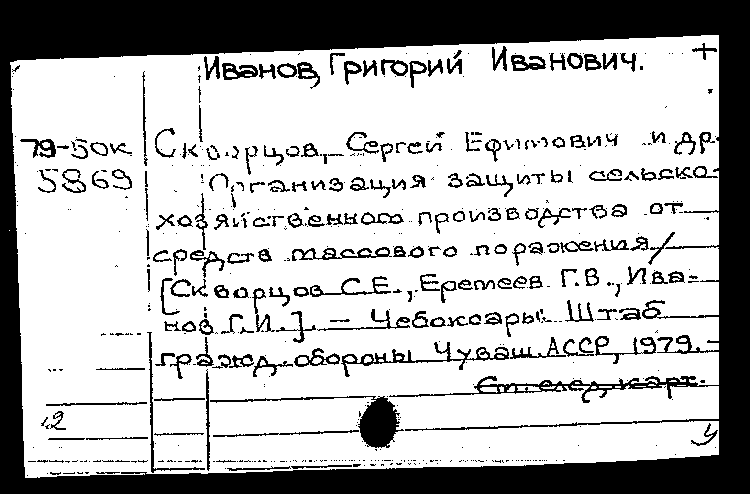 Иванов, Григорий Иванович. +
79-50к Скворцов, Сергей Ефимович и др.
5869 Организация защиты сельско-
хозяйственного производства от
средств массового поражения/
[Скворцов С.Е., Еремеев Г.В., Ива-
нов Г.И.]. – Чебоксары: Штаб
гражд. обороны Чуваш.АССР, 1979.–
См. след. карт.
12
У